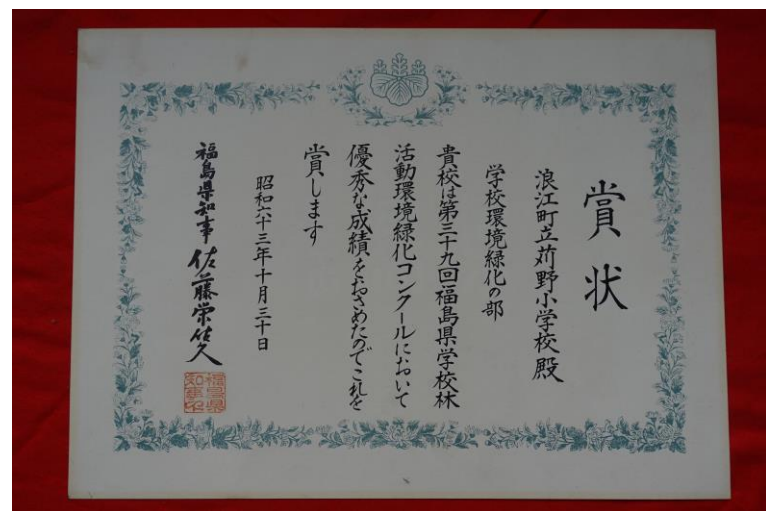 賞状
浪江町立苅野小学校殿
学校環境緑化の部
貴校は第三十九回福島県学校林
活動環境緑化コンクールにおいて
優秀な成績をおさめたのでこれを
賞します
昭和六十三年十月三十日
福島県知事 佐藤栄佐久
福島県
知事之印